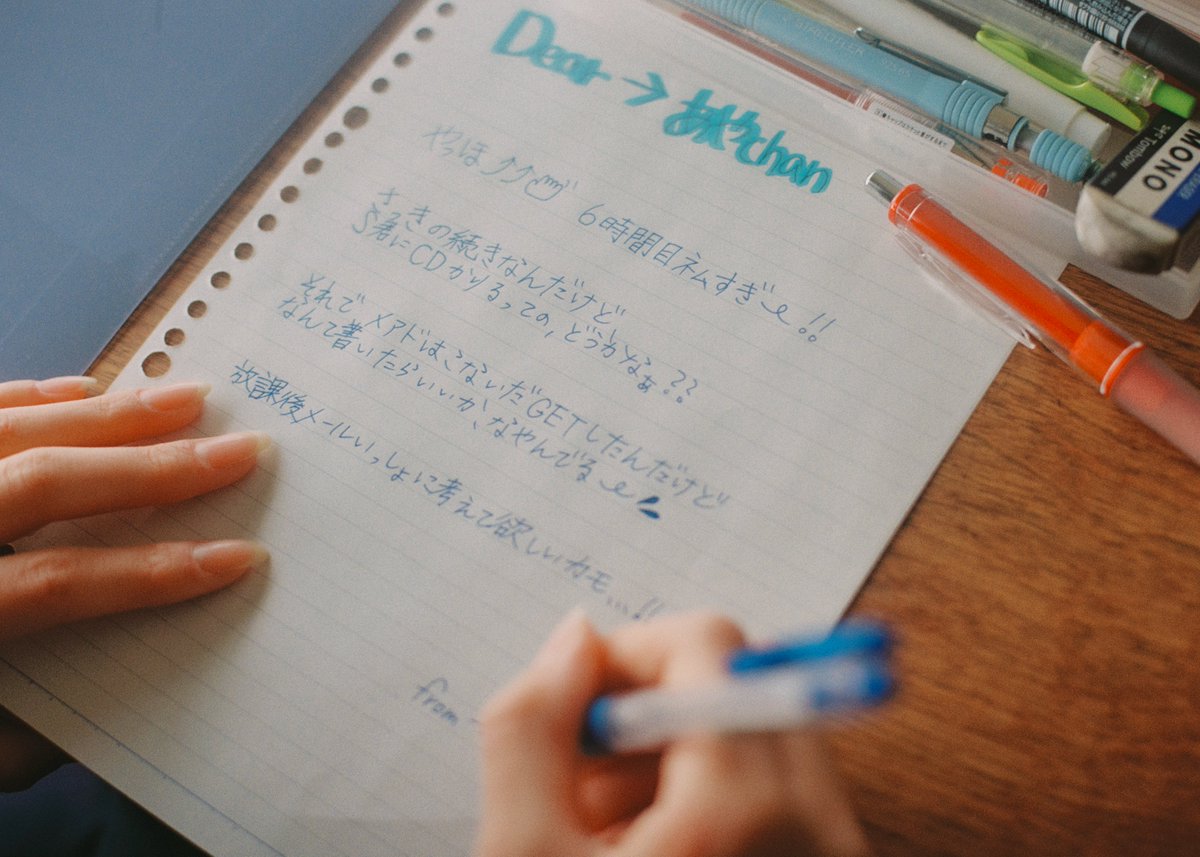 Dear→あやchan
やっほククク 6時間目ネムすぎ〜!!
さっきの続きなんだけど
S君にCDかりるっての,どうかなぁ??
それで、メアドはこないだGETしたんだけど
なんて書いたらいいか、なやんでる〜
放課後メールいっしょに考えて欲しいカモ...!!
from
MONO
Tombow